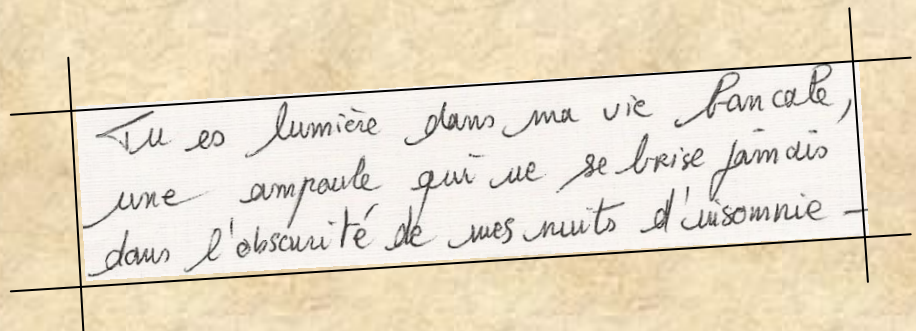 Tu es lumière dans ma vie bancale,
une ampoule qui ne se brise jamais
dans l'obscurité de mes nuits d'insomnie -